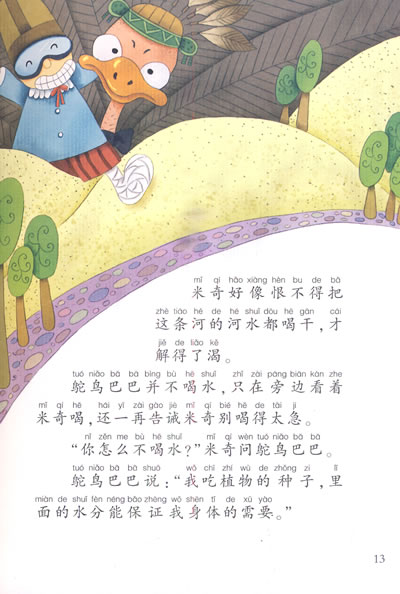 mǐ qí hǎo xiàng hèn bu de bǎ
米奇好像恨不得把
zhè tiáo hé de hé shuǐ dōu hē gān cái
这条河的河水都喝干，才
jiě de liǎo kě
解得了渴。
tuó niǎo bā ba bìng bù hē shuǐ zhǐ zài páng biān kàn zhe
鸵鸟巴巴并不喝水，只在旁边看着
mǐ qí hē hái yí zài gào jiè mǐ qí bié hē de tài jí
米奇喝，还一再告诫米奇别喝得太急。
nǐ zěn me bù hē shuǐ mǐ qí wèn tuó niǎo bā ba
“你怎么不喝水？”米奇问鸵鸟巴巴。
tuó niǎo bā ba shuō wǒ chī zhí wù de zhǒng zi lǐ
鸵鸟巴巴说：“我吃植物的种子，里
miàn de shuǐ fèn néng bǎo zhèng wǒ shēn tǐ de xū yào
面的水分能保证我身体的需要。”
13